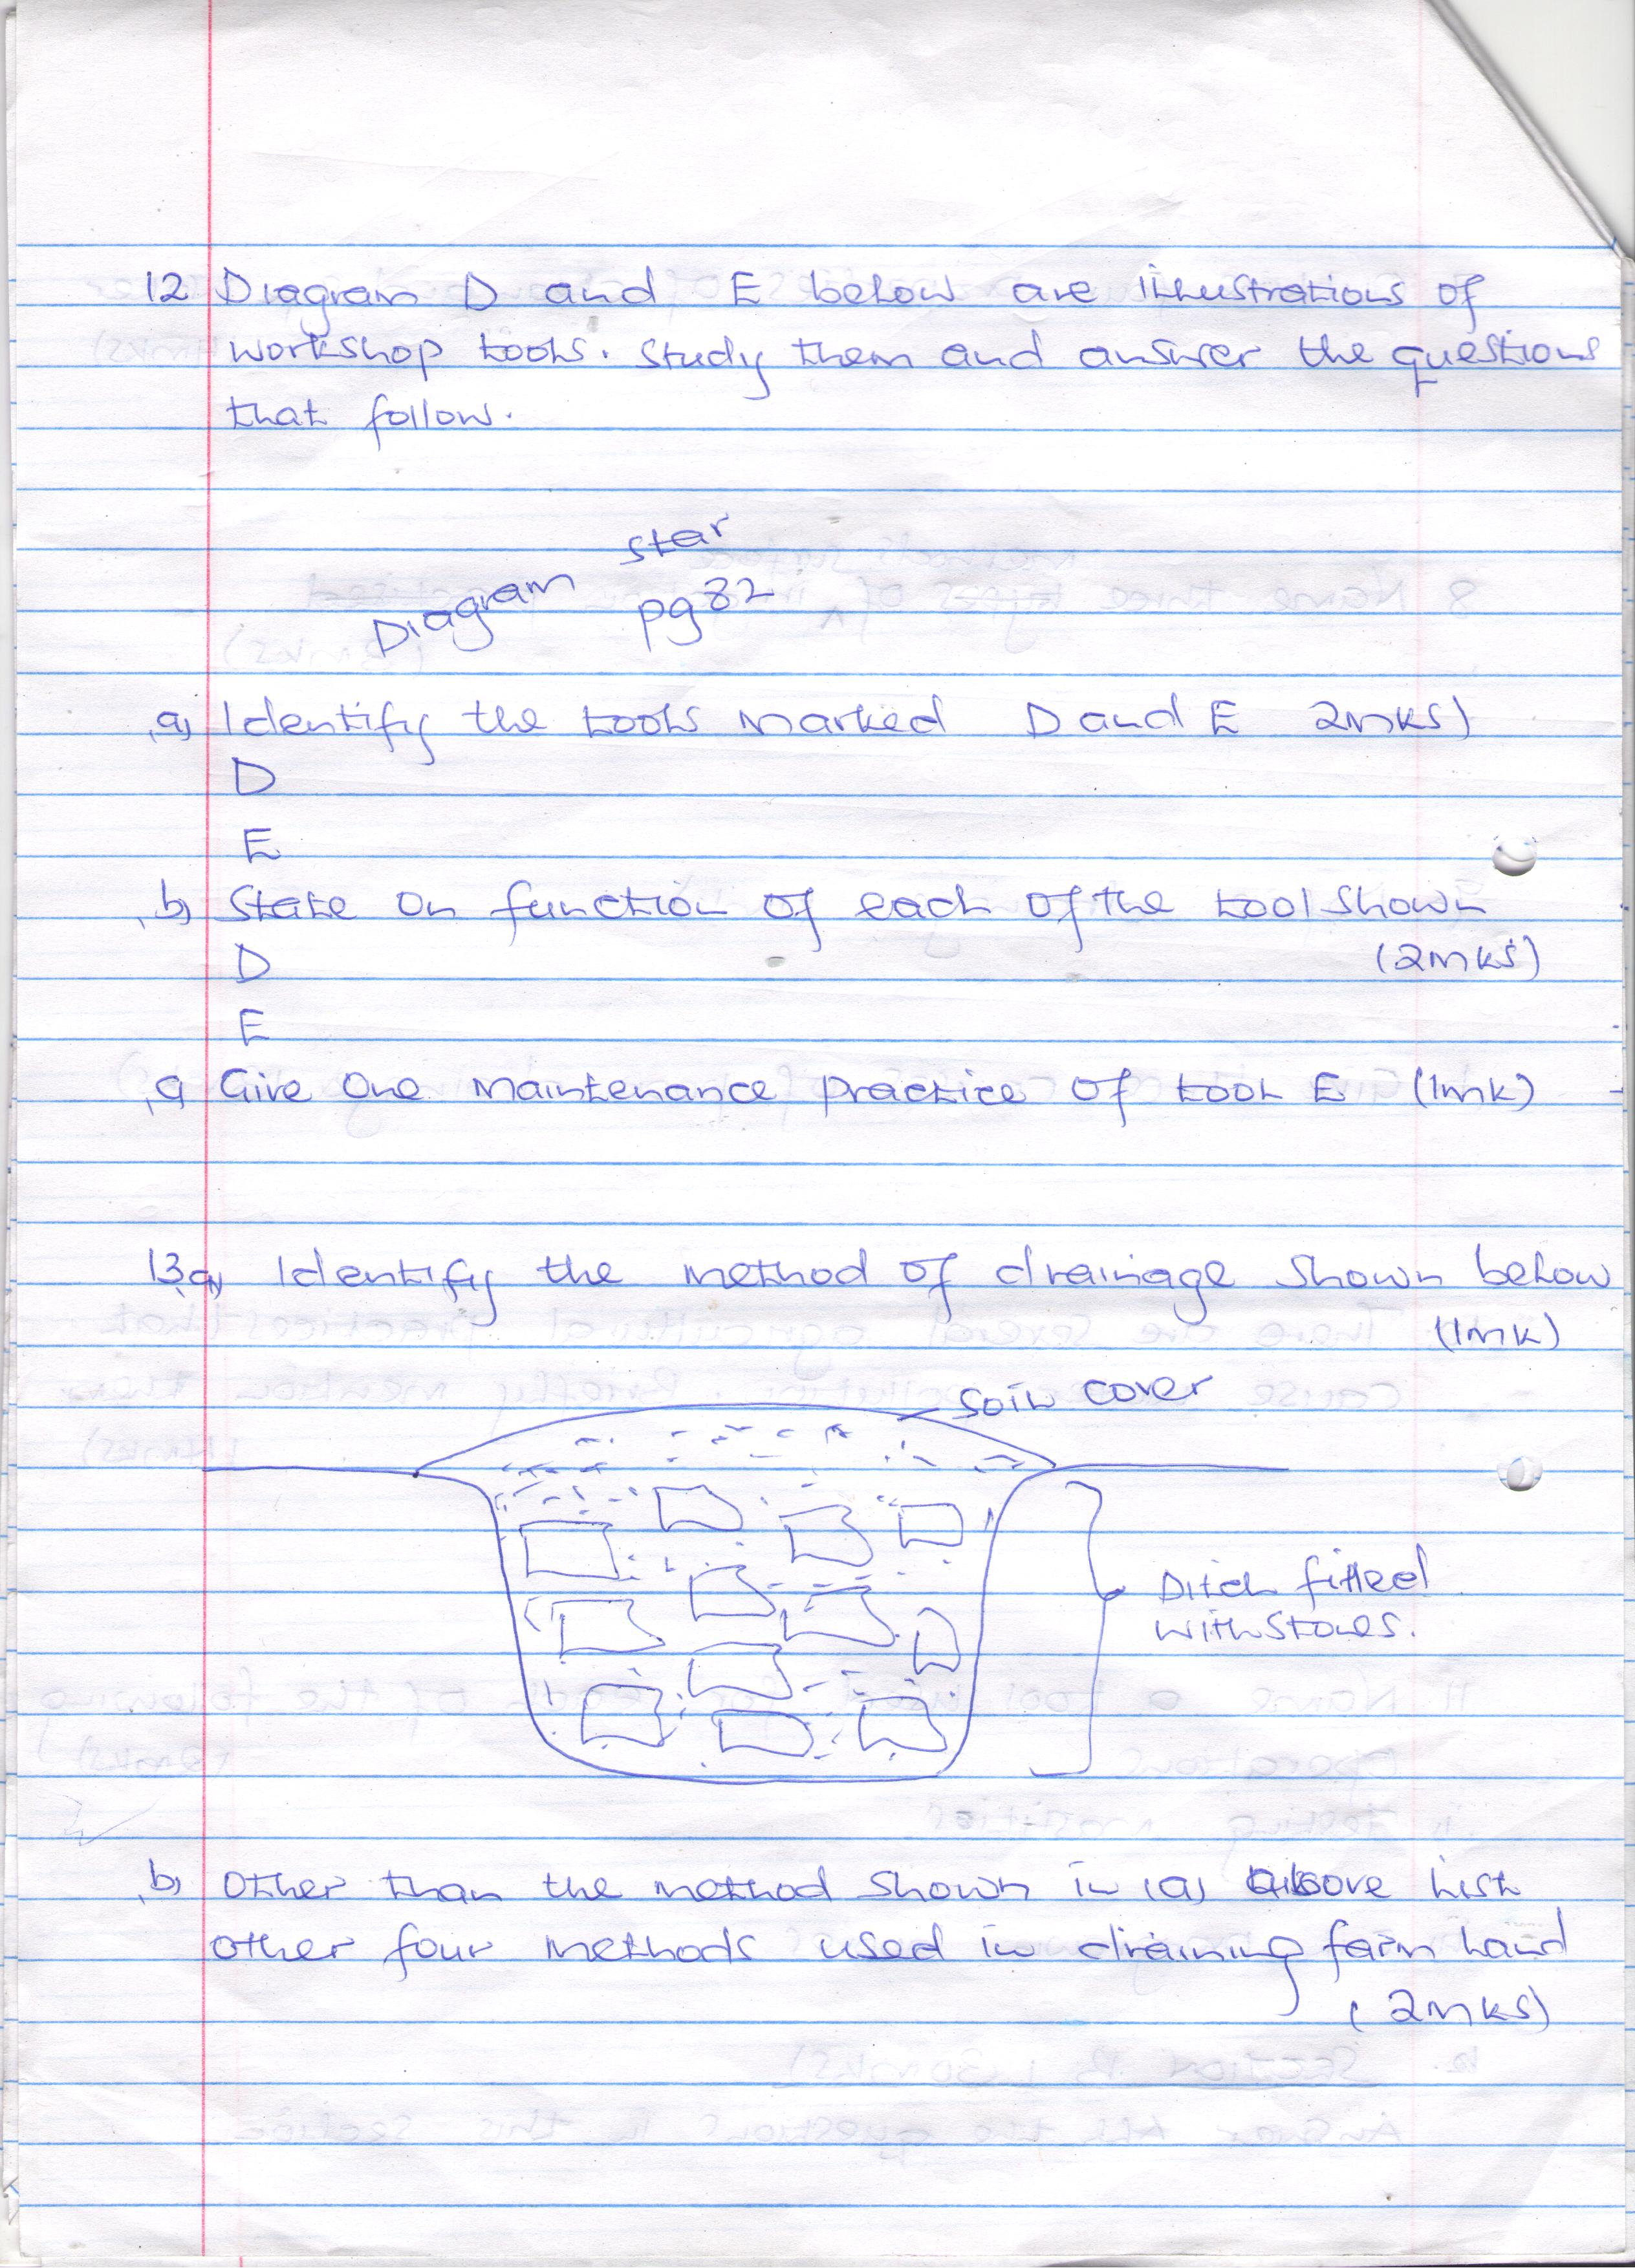 12 Diagram D and E below are illustrations of
workshop tools. Study them and answer the questions
that follow.
Diagram star
pg 82
a) Identify the tools marked D and E 2mks)
D
E
b) State on function of each of the tool shown
(2mks)
D
E
c) Give One Maintenance practice of tool E (1mk)
13a) Identify the method of drainage shown below
(1mk)
Soil cover
Ditch filled
with stones.
b) Other than the method shown in (a) above list
other four methods used in draining farm land
(2mks)